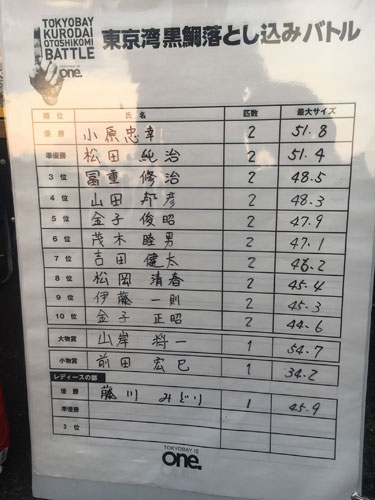 TOKYOBAY
KURODAI
OTOSHIKOMI
BATTLE
TOKYOBAY IS
ONE.
東京湾黒鯛落とし込みバトル
順位 氏名 匹数 最大サイズ
優勝 小原忠幸 2 51.8
準優勝 松田 純治 2 51.4
3位 冨重 修治 2 48.5
4位 山田 邦彦 2 48.3
5位 金子 俊昭 2 47.9
6位 茂木 睦男 2 47.1
7位 吉田 健太 2 46.2
8位 松岡 清春 2 45.4
9位 伊藤 一則 2 45.3
10位 金子 正昭 2 44.6
大物賞 山岸 将一 1 54.7
小物賞 前田 宏巳 1 34.2
レディースの部
優勝 藤川 みどり 1 45.9
準優勝
3位
TOKYOBAY IS
ONE.